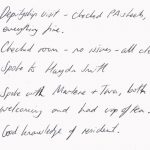 Deputyship visit - checked PA sheets,
everything fine.
Checked room - no issues - all ok
Spoke to Haydn Smith
Spoke with Marlene + Tara, both
welcoming and had cup of tea.
Good knowledge of resident.